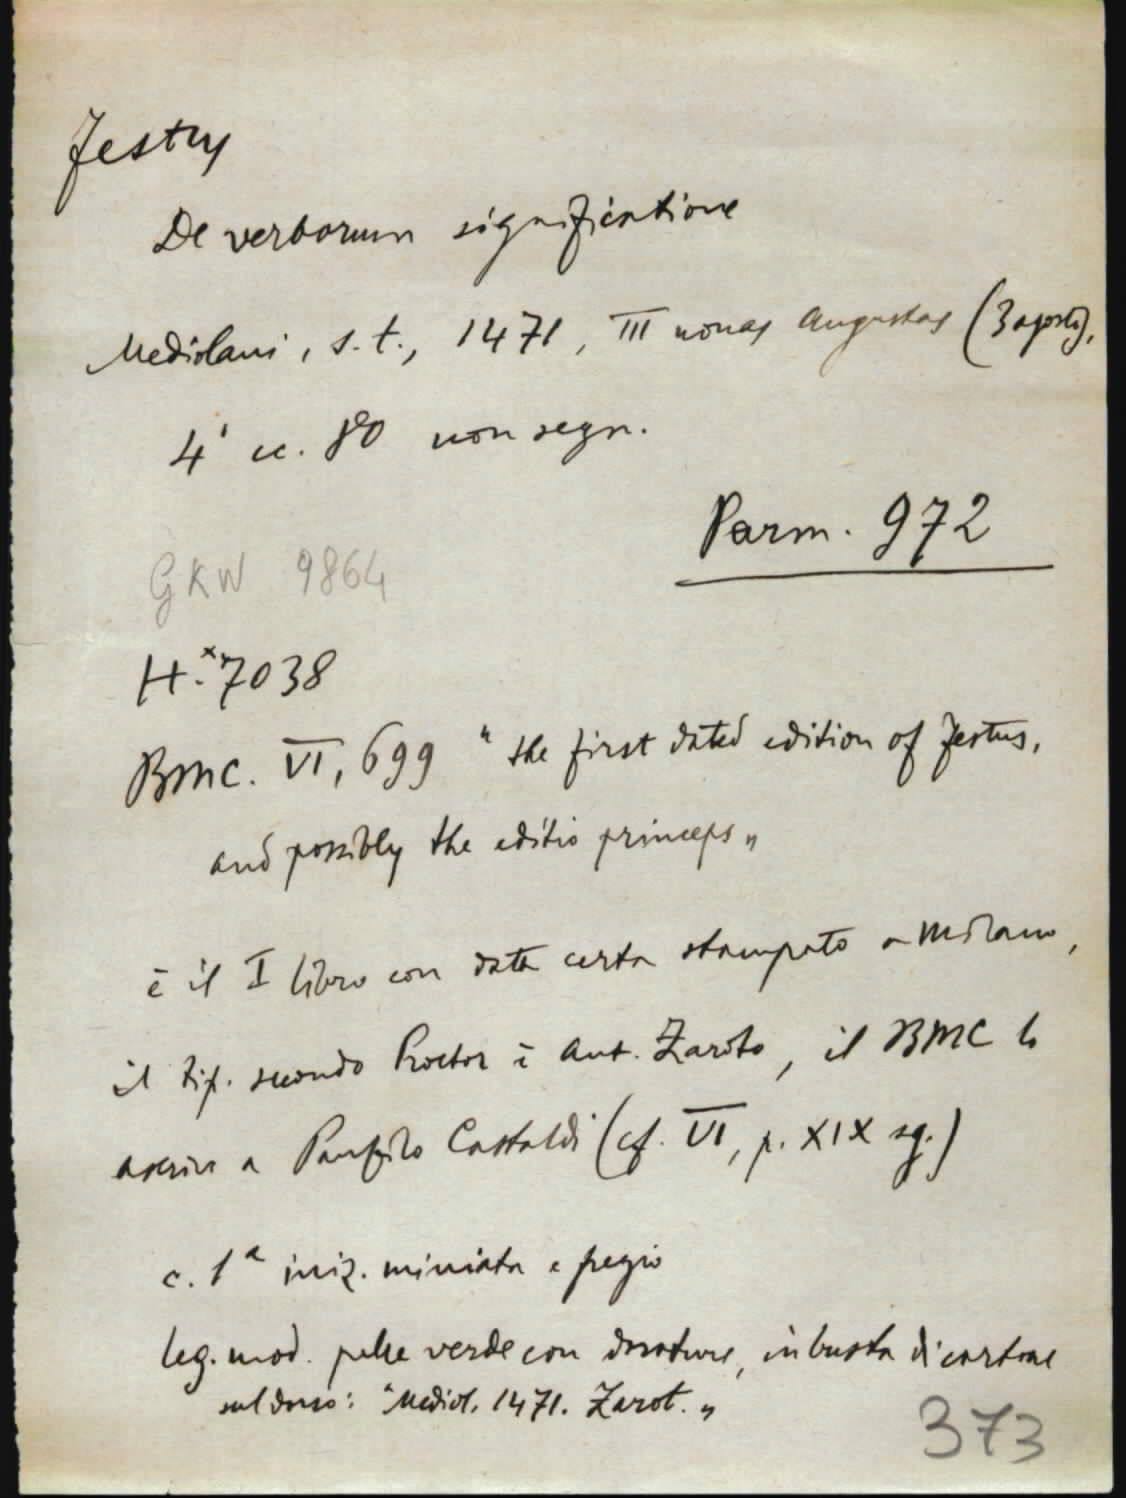 Festus
De verborum significatione
Mediolani, s.t., 1471, III nonas Augustas (3 agosto),
4° cc. 80 non segn.
Parm. 972
GKW 9864
H.*7038
BMC. VI, 699 "the first dated edition of Festus,
and possibly the editio princeps"
è il I libro con data certa stampato a Milano,
il tip. secondo Proctor è Ant. Zaroto, il BMC lo
ascrive a Panfilo Castaldi (cf. VI, p. XIX sg.)
c. 1ª iniz. miniata e fregio
leg. mod. pelle verde con dorature, in busta di cartone
sul dorso: "Mediol. 1471. Zarot."
373